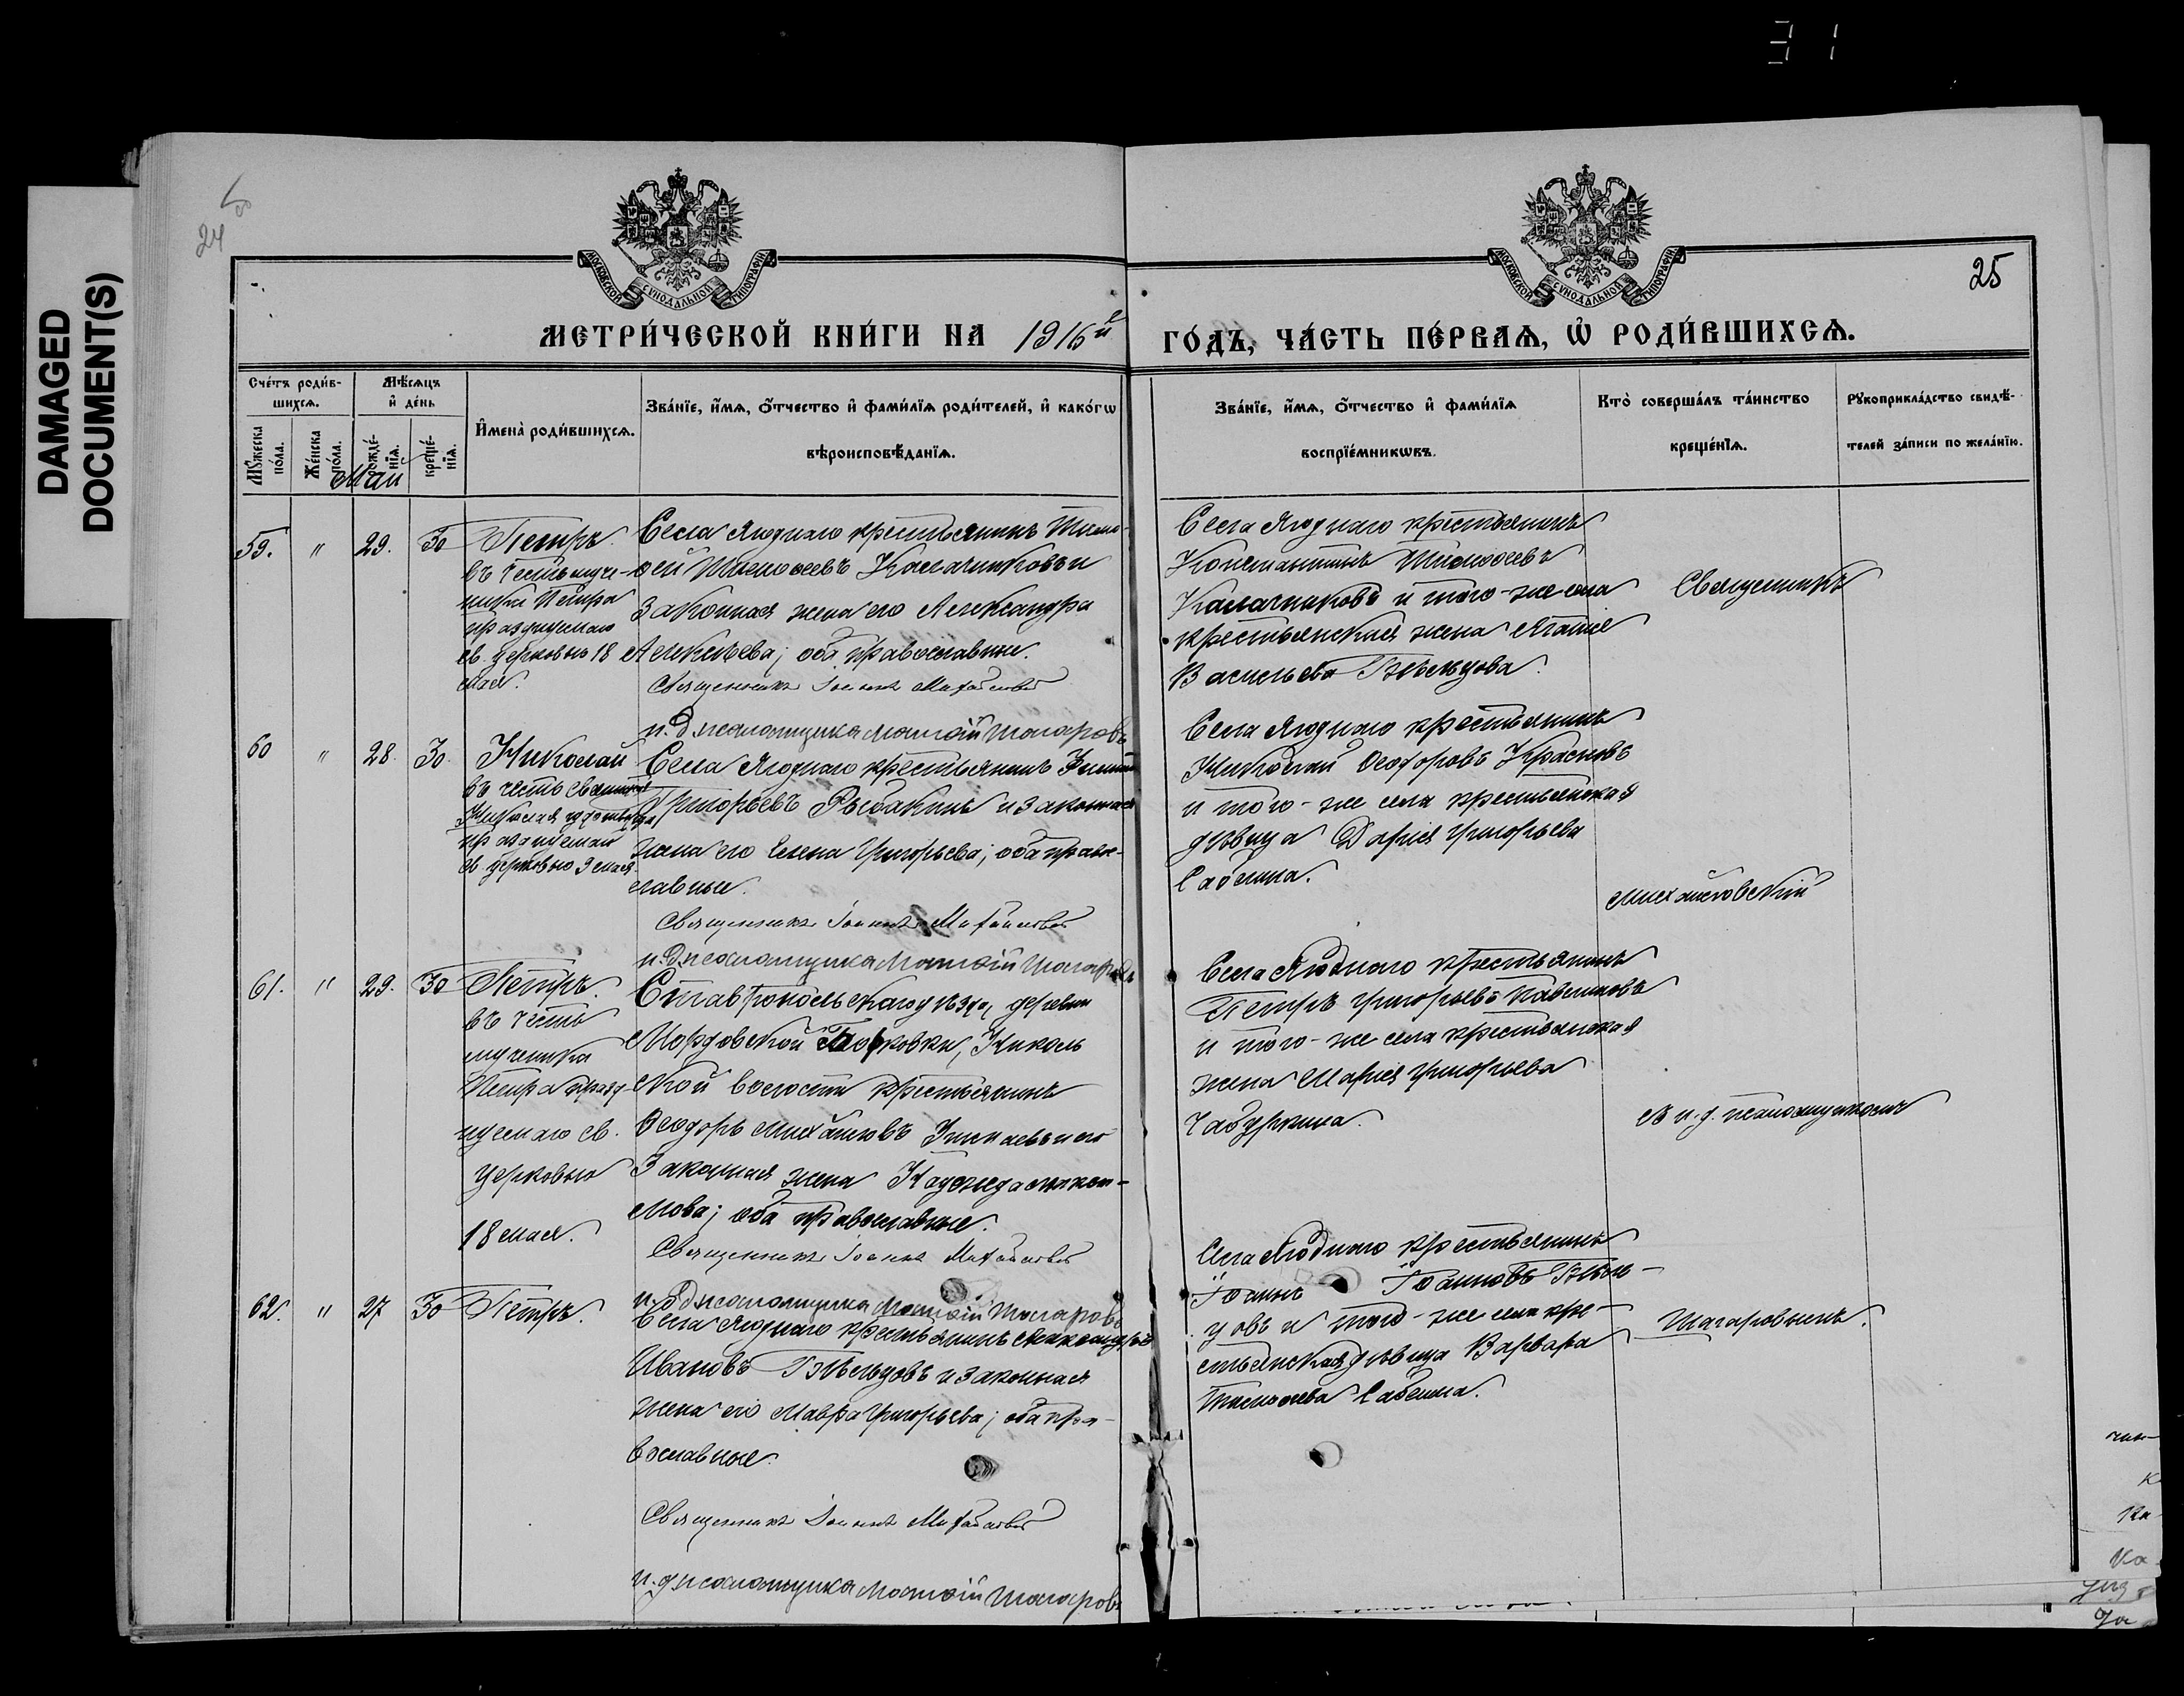 31
DAMAGED
DOCUMENT(S)
24
25
МОСКОВСКОЙ СѴНОДАЛЬНОЙ ТИПОГРАФІИ
МОСКОВСКОЙ СѴНОДАЛЬНОЙ ТИПОГРАФІИ
МЕТРИ́ЧЕСКОЙ КНИ́ГИ НА 1916й ГО́ДЪ, ЧА́СТЬ ПЕ́РВАѦ, Ѡ РОДИ́ВШИХСѦ.
Сче́тъ роди́в-
шихсѧ.
Мꙋ́жеска
по́ла.
Же́нска
по́ла.
Мѣ́сѧцъ
и҆ де́нь
рожде́-
нїѧ.
креще́-
нїѧ.
Май
И҆мена̀ роди́вшихсѧ.
Зва́нїе, и҆́мѧ, ѻ҆́тчество и҆ фами́лїѧ роди́телей, и҆ како́гѡ
вѣроисповѣ́данїѧ.
Зва́нїе, и҆́мѧ, ѻ҆́тчество и҆ фами́лїѧ
воспрїе́мникѡвъ.
Кто̀ соверша́лъ та́инство
креще́нїѧ.
Рꙋкоприкла́дство свидѣ́-
телей за́писи по жела́нїю.
59. " 29. 30 Петръ.
въ честь муче-
ника Петра
празднуемаго
св. церковью 18
мая.
Села Ягоднаго крестьянинъ Тимо-
ѳей Тимоѳеевъ Калачиковъ и
законная жена его Александра
Алексѣева; оба православные.
Священникъ Іоаннъ Михайловскій
и. д. псаломщика Матѳій Шагаровъ
Села Ягоднаго крестьянинъ
Константинъ Тимоѳеевъ
Калачиковъ и того-же села
крестьянская жена Агаѳія
Васильева Бѣльцова.
Священникъ
60 " 28. 30. Николай
въ честь святителя
Николая чудотворца
празднуемаго
св. церковью 9 мая.
Села Ягоднаго крестьянинъ
Григорьевъ Рыбакинъ и законная
жена его Елена Григорьева; оба право-
славные.
Священникъ Іоаннъ Михайловскій
и. д. псаломщика Матѳій Шагаровъ
Села Ягоднаго крестьянинъ
Николай Ѳеодоровъ Красновъ
и того-же села крестьянская
дѣвица Дарія Григорьева
Сабелина.
Михайловскій
61. " 29. 30 Петръ.
въ честь
мученика
Петра празд-
нуемаго св.
церковью
18 мая.
Ставропольскаго уѣзда, деревни
Мордовской Борковки, Николь
ской волости крестьянинъ
Ѳеодоръ Михайловъ и его
законная жена Надежда
мова; оба православные.
Священникъ Іоаннъ Михайловскій
и. д. псаломщика Матѳій Шагаровъ
Села Ягоднаго крестьянинъ
Петръ Григорьевъ Павелковъ
и того-же села крестьянская
жена Марія Григорьева
Чабуркина.
съ и. д. псаломщикомъ
62. " 27 30 Петръ.
Села Ягоднаго крестьянинъ Александръ
Ивановъ Бѣльцовъ и законная
жена его Мавра Григорьева; оба пра-
вославные.
Священникъ Іоаннъ Михайловскій
и. д. псаломщика Матѳій Шагаровъ
Села Ягоднаго крестьянинъ
Іоаннъ Іоанновъ Бѣль-
цовъ и того-же села кре-
стьянская дѣвица Варвара
Тимоѳеева Сабелина.
Шагаровымъ.